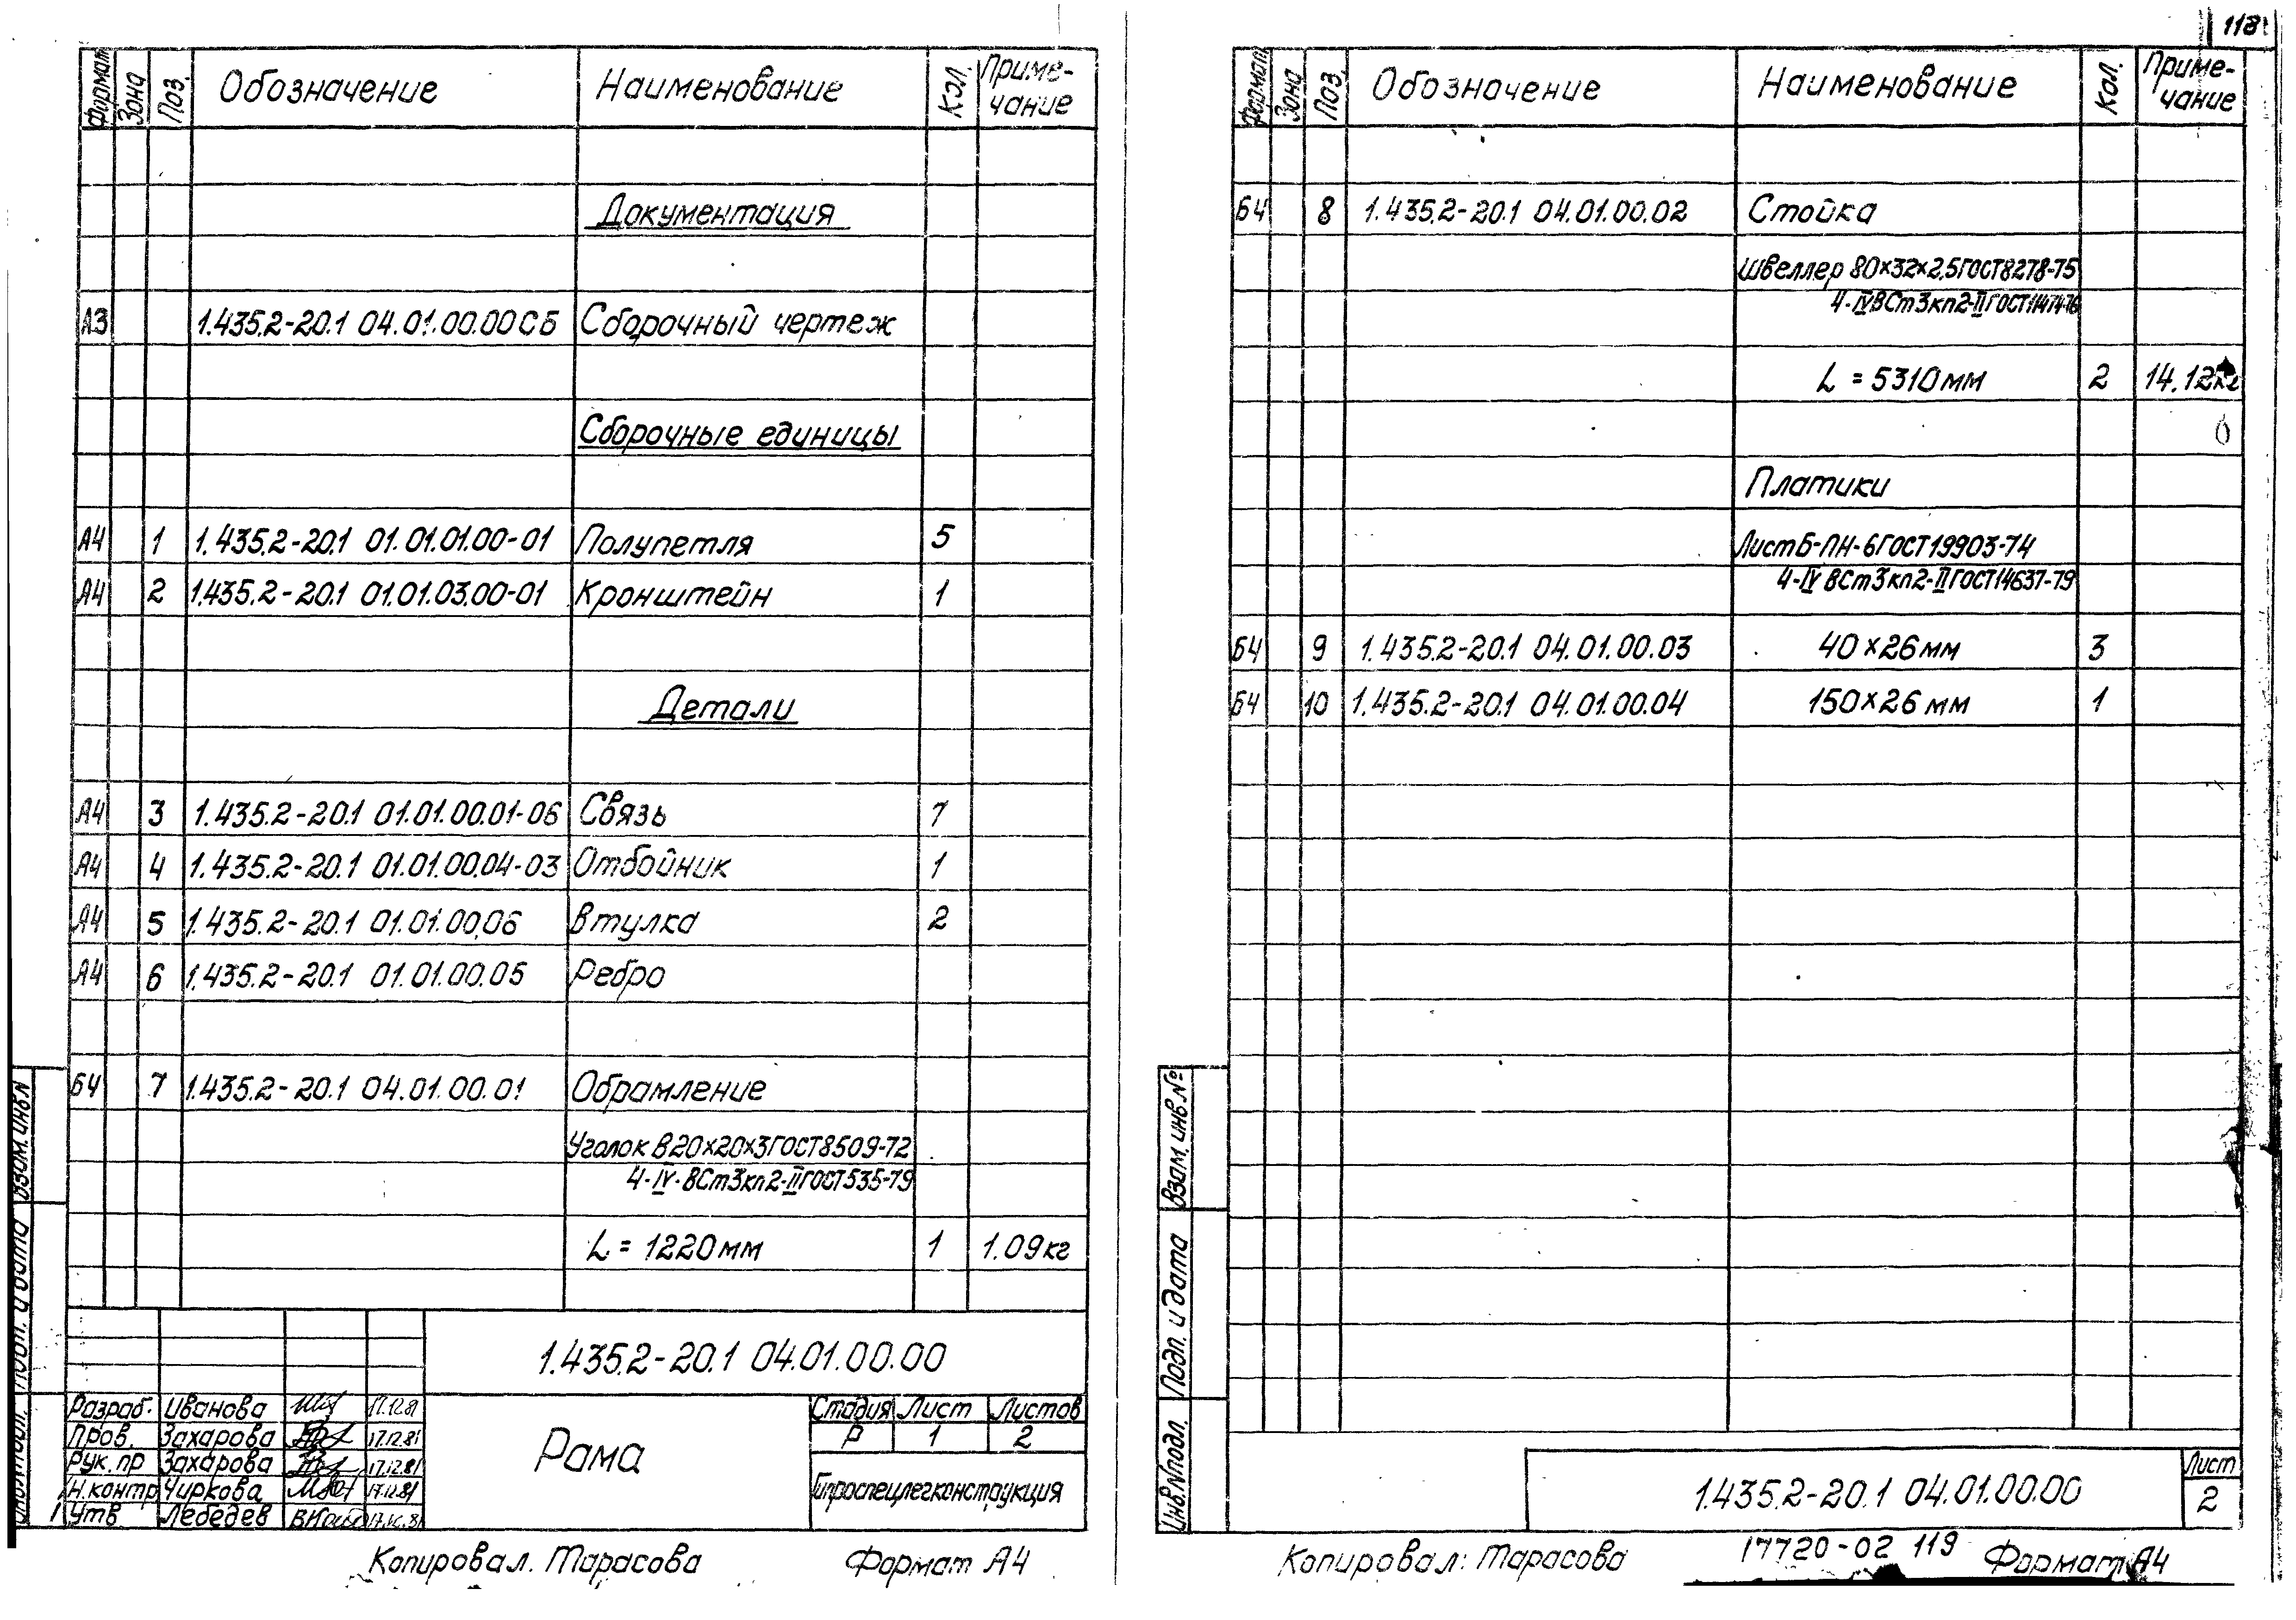 Формат Зона Поз. Обозначение Наименование Кол. Приме-
чание
Документация
А3 1.435.2-20.1 04.01.00.00СБ Сборочный чертеж
Сборочные единицы
А4 1 1.435.2-20.1 01.01.01.00-01 Полупетля 5
А4 2 1.435.2-20.1 01.01.03.00-01 Кронштейн 1
Детали
А4 3 1.435.2-20.1 01.01.00.01-06 Связь 7
А4 4 1.435.2-20.1 01.01.00.04-03 Отбойник 1
А4 5 1.435.2-20.1 01.01.00.06 Втулка 2
А4 6 1.435.2-20.1 01.01.00.05 Ребро
Б4 7 1.435.2-20.1 04.01.00.01 Обрамление
Уголок В20×20×3ГОСТ8509-72
4-IV-ВСт3кп2-IIГОСТ535-79
L = 1220мм 1 1.09кг
Взам.инв.N
Подп. и дата
1.435.2-20.1 04.01.00.00
Разраб. Иванова 17.12.81
Пров. Захарова 17.12.81
Рук.пр Захарова 17.12.81
Н.контр Чиркова 17.12.81
Утв Лебедев
Рама
Стадия Лист Листов
Р 1 2
Гипроспецлегконструкция
Копировал. Тарасова Формат А4
118
Формат Зона Поз. Обозначение Наименование Кол. Приме-
чание
Б4 8 1.435.2-20.1 04.01.00.02 Стойка
Швеллер 80×32×2,5ГОСТ8278-75
4-IVВСт3кп2-IIГОСТ11474-76
L = 5310мм 2 14.12кг
Платики
ЛистБ-ПН-6ГОСТ19903-74
4-IVВСт3кп2-IIГОСТ14637-79
Б4 9 1.435.2-20.1 04.01.00.03 40×26мм 3
Б4 10 1.435.2-20.1 04.01.00.04 150×26мм 1
Взам.инв.№
Подп. и дата
Инв.Nподл.
1.435.2-20.1 04.01.00.00
Лист
2
Копировал: Тарасова 17720-02 119 Формат А4